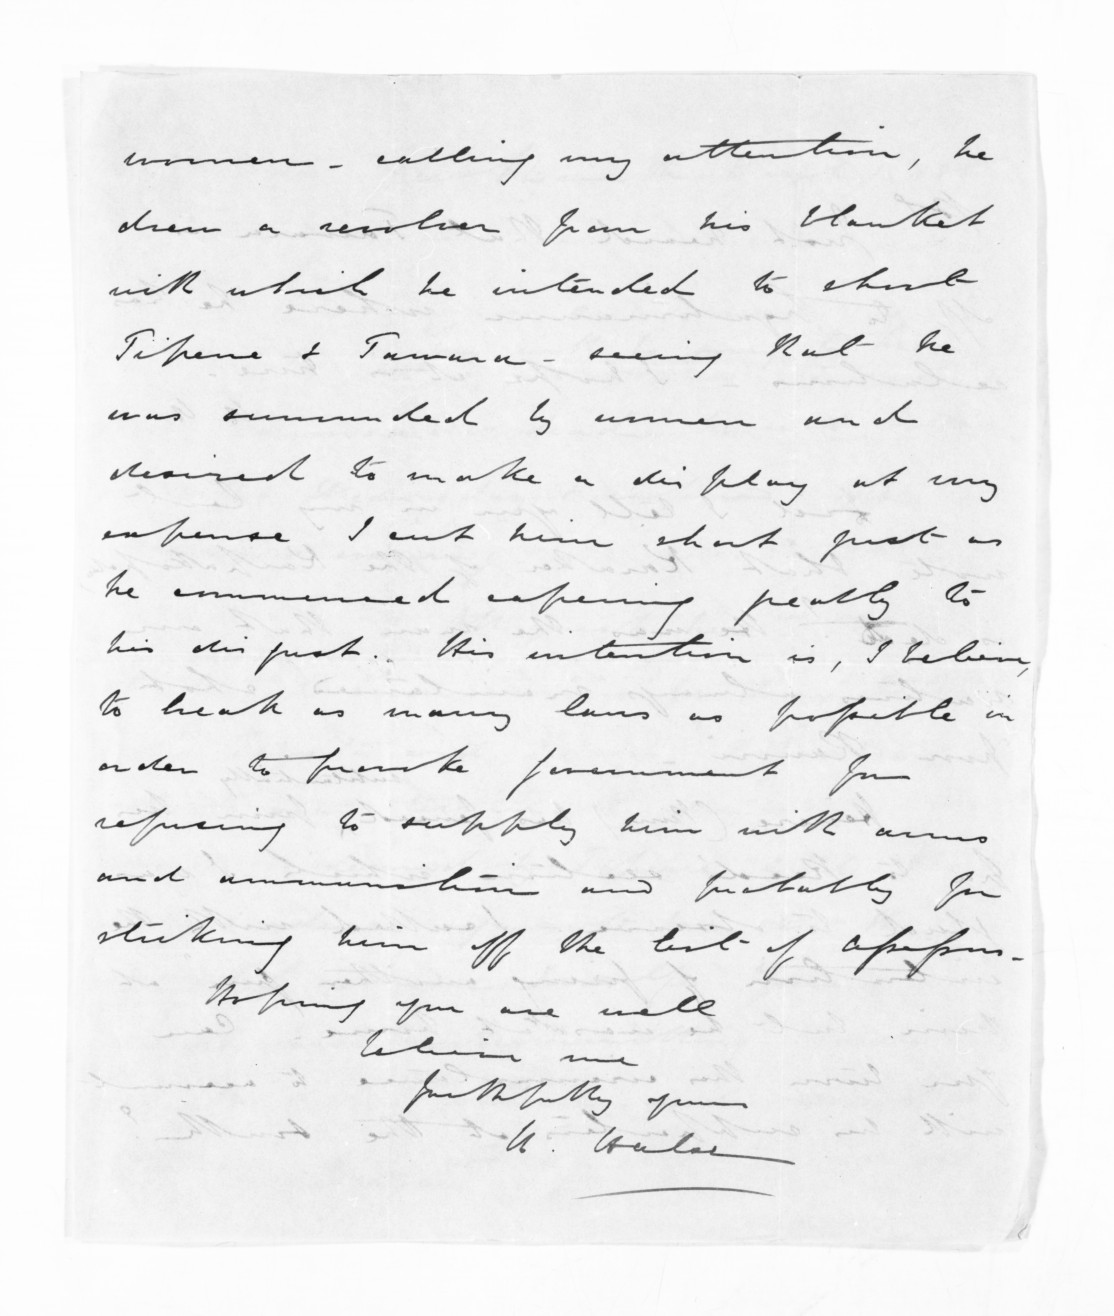 women - calling my attention, he
drew a revolver from his blanket
with which he intended to shoot
Tipene & Tamara - seeing that he
was surrounded by women and
desired to make a display at my
expense I cut him short just as
he commenced capering greatly to
his disgust. His intention is, I believe,
to break as many laws as possible in
order to provoke government for
refusing to supply him with arms
and ammunition and probably for
striking him off the list of assessors -
Hoping you are well
believe me
faithfully yours
H. Halse